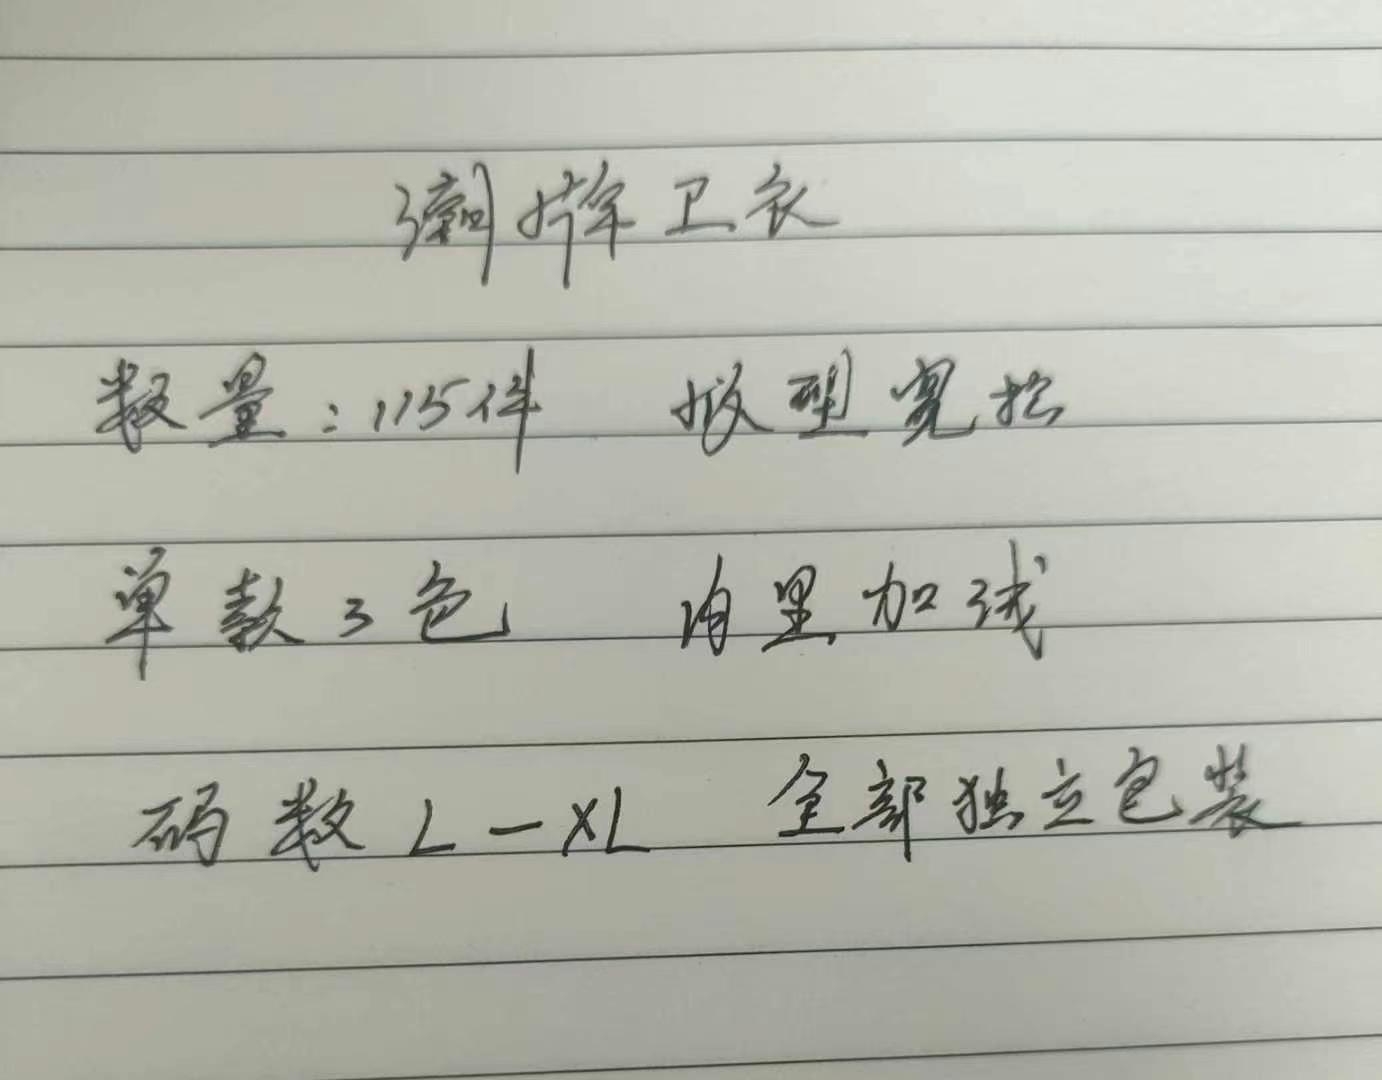 潮牌卫衣
数量：115件 版型宽松
单款3色 内里加绒
码数L-XL 全部独立包装